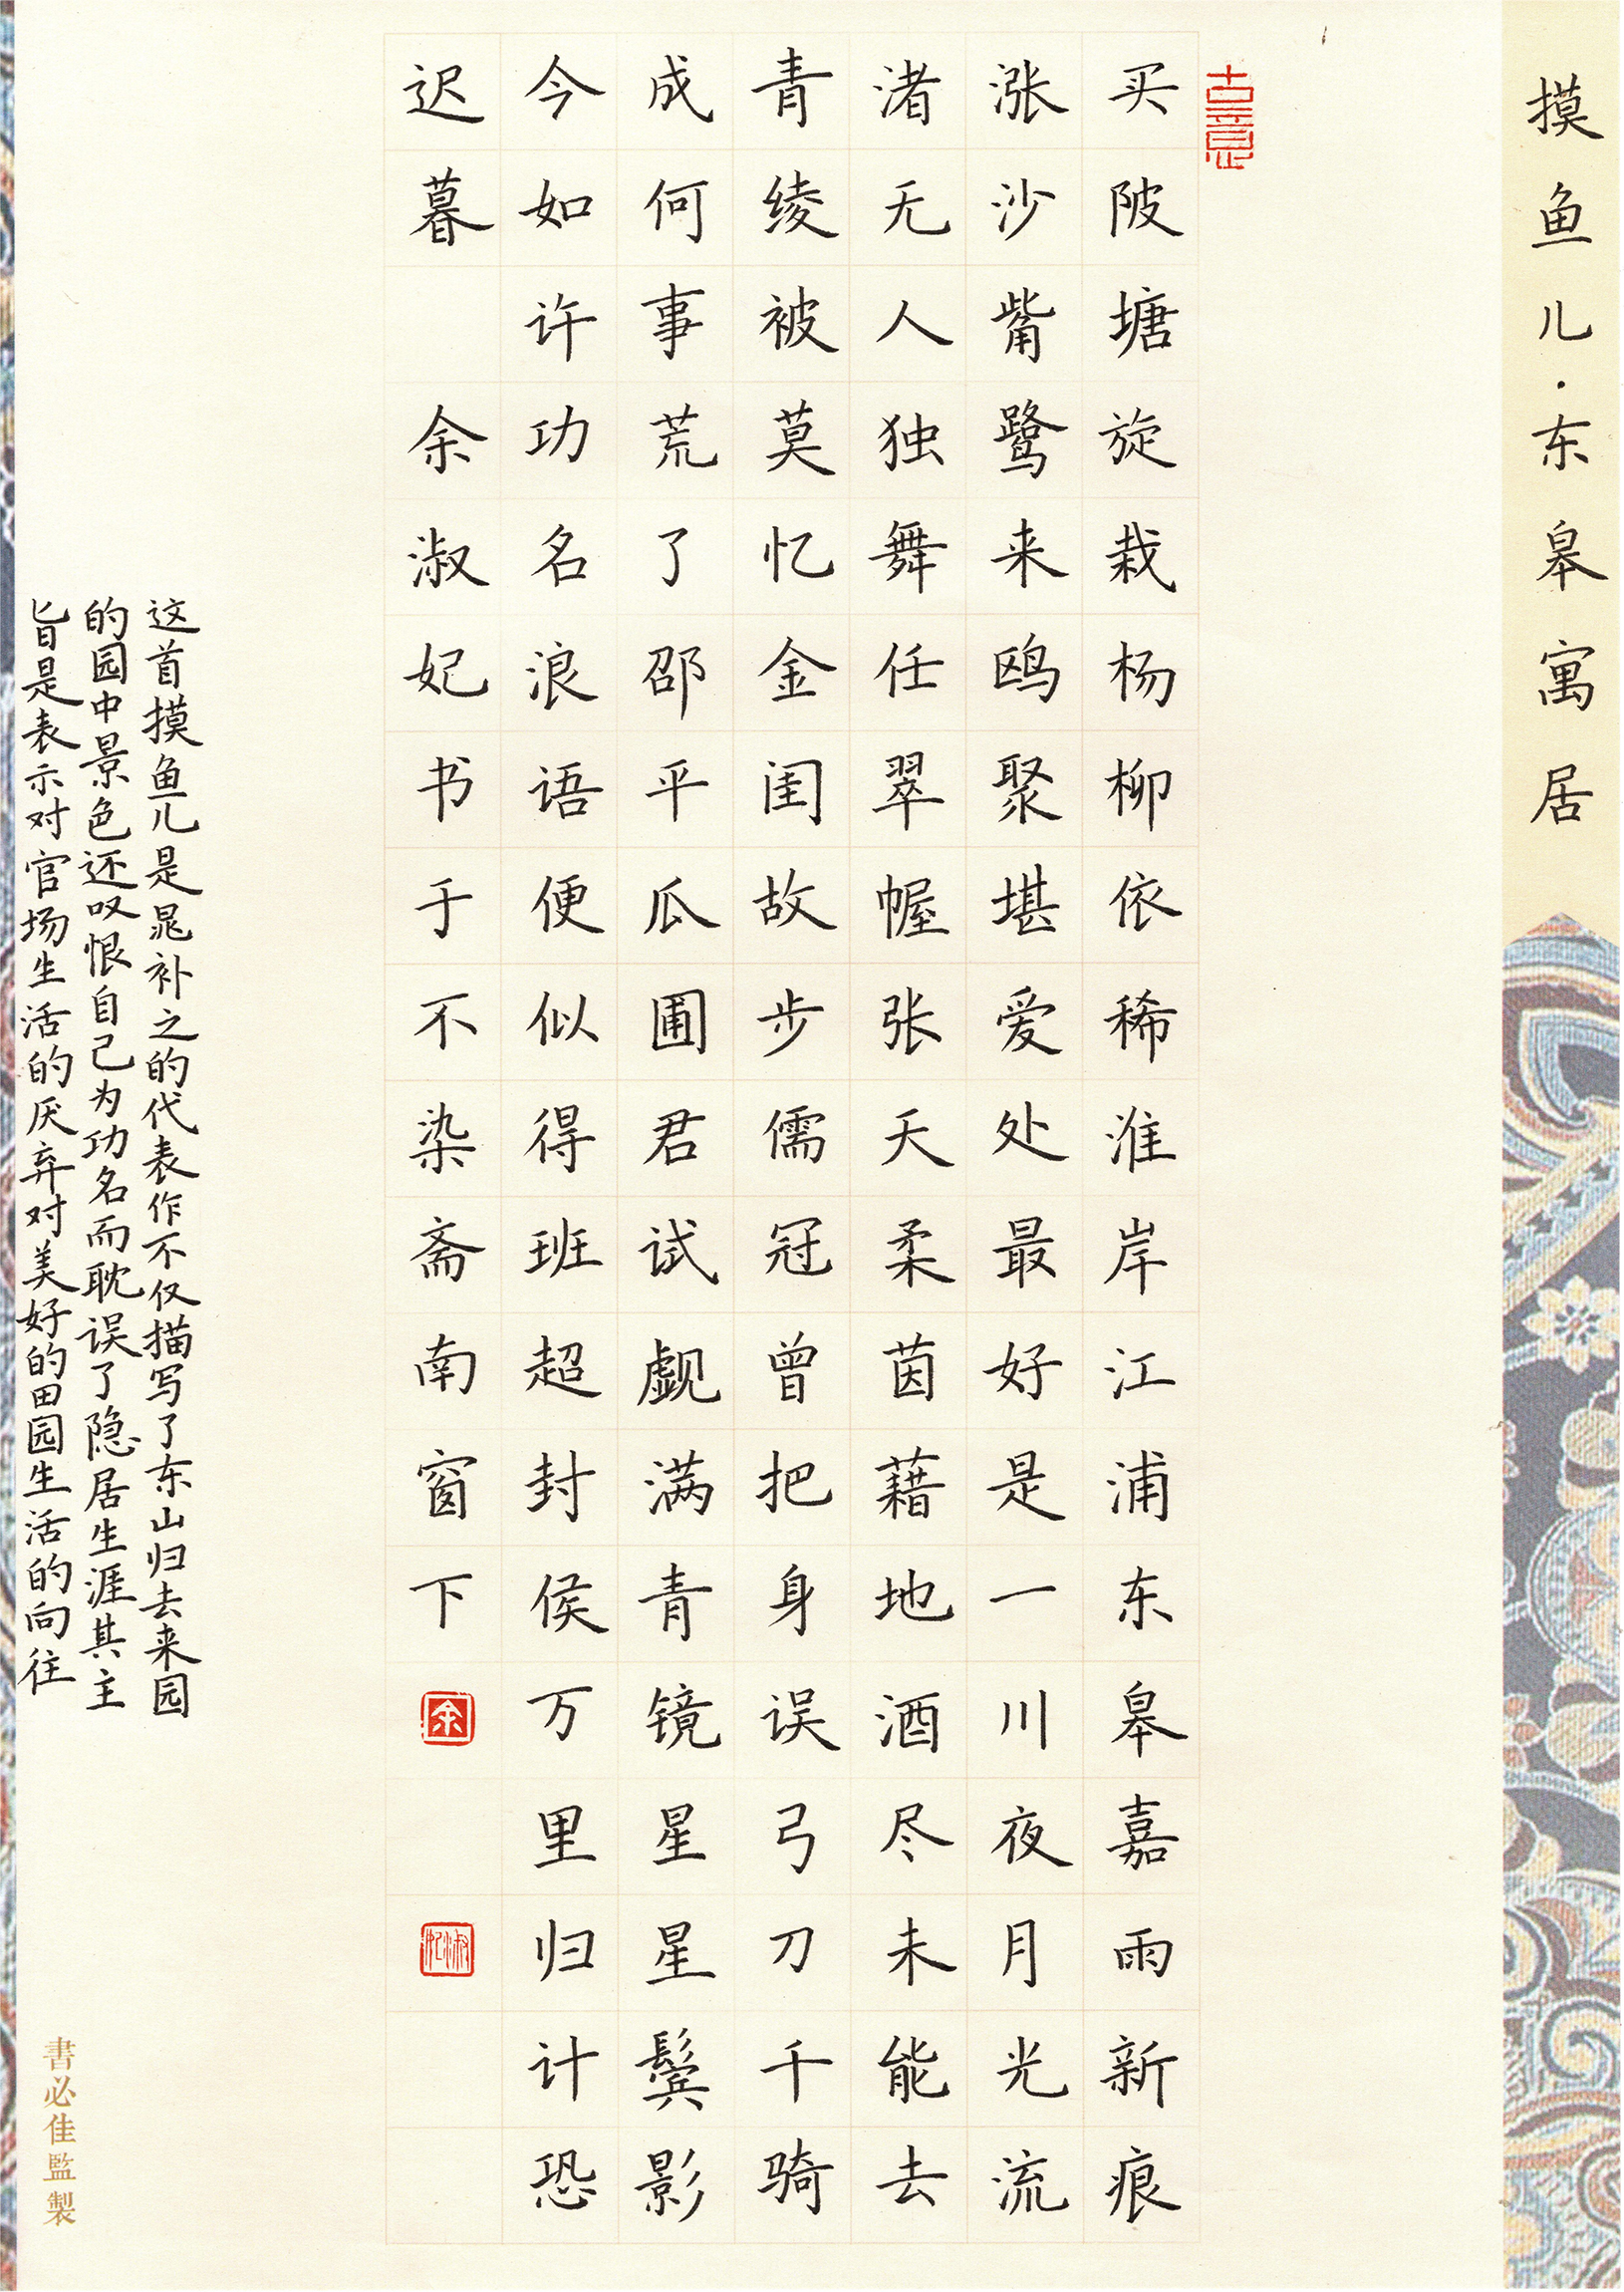 摸鱼儿·东皋寓居
古意
买陂塘旋栽杨柳依稀淮岸江浦东皋嘉雨新痕
涨沙觜鹭来鸥聚堪爱处最好是一川夜月光流
渚无人独舞任翠幄张天柔茵藉地酒尽未能去
青绫被莫忆金闺故步儒冠曾把身误弓刀千骑
成何事荒了邵平瓜圃君试觑满青镜星星鬓影
今如许功名浪语便似得班超封侯万里归计恐
迟暮 余淑妃书于不染斋南窗下
余
淑妃
这首摸鱼儿是晁补之的代表作不仅描写了东山归去来园
的园中景色还叹恨自己为功名而耽误了隐居生涯其主
旨是表示对官场生活的厌弃对美好的田园生活的向往
書必佳監製